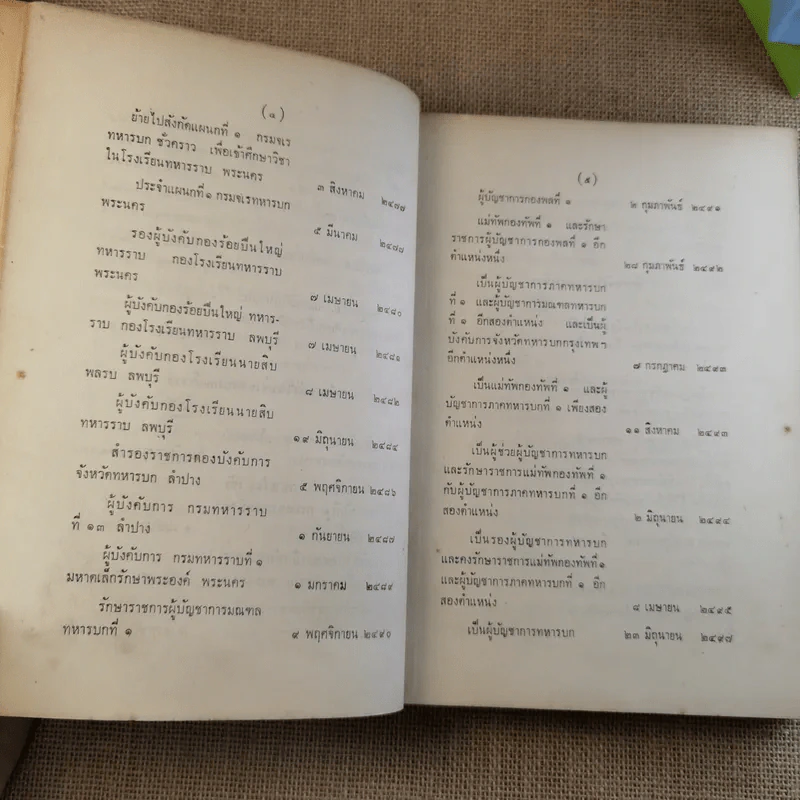 (๔)
ย้ายไปสังกัดแผนกที่ ๑ กรมจเร
ทหารบก ชั่วคราว เพื่อเข้าศึกษาวิชา
ในโรงเรียนทหารราบ พระนคร ๓ สิงหาคม ๒๔๗๗
ประจำแผนกที่ ๑ กรมจเรทหารบก
พระนคร ๕ มีนาคม ๒๔๗๘
รองผู้บังคับกองร้อยปืนใหญ่
ทหารราบ กองโรงเรียนทหารราบ
พระนคร ๗ เมษายน ๒๔๘๐
ผู้บังคับกองร้อยปืนใหญ่ ทหาร-
ราบ กองโรงเรียนทหารราบ ลพบุรี ๗ เมษายน ๒๔๘๑
ผู้บังคับกองโรงเรียนนายสิบ
พลรบ ลพบุรี ๘ เมษายน ๒๔๘๒
ผู้บังคับกองโรงเรียนนายสิบ
ทหารราบ ลพบุรี ๑๙ มิถุนายน ๒๔๘๔
สำรองราชการกองบังคับการ
จังหวัดทหารบก ลำปาง ๕ พฤศจิกายน ๒๔๘๖
ผู้บังคับการ กรมทหารราบ
ที่ ๑๓ ลำปาง ๑ กันยายน ๒๔๘๗
ผู้บังคับการ กรมทหารราบที่ ๑
มหาดเล็กรักษาพระองค์ พระนคร ๑ มกราคม ๒๔๘๙
รักษาราชการผู้บัญชาการมณฑล
ทหารบกที่ ๑ ๙ พฤศจิกายน ๒๔๙๐
(๕)
ผู้บัญชาการกองพลที่ ๑ ๒ กุมภาพันธ์ ๒๔๙๑
แม่ทัพกองทัพที่ ๑ และรักษา
ราชการผู้บัญชาการกองพลที่ ๑ อีก
ตำแหน่งหนึ่ง ๒๘ กุมภาพันธ์ ๒๔๙๒
เป็นผู้บัญชาการภาคทหารบก
ที่ ๑ และผู้บัญชาการมณฑลทหารบก
ที่ ๑ อีกสองตำแหน่ง และเป็นผู้
บังคับการจังหวัดทหารบกกรุงเทพ ฯ
อีกตำแหน่งหนึ่ง ๗ กรกฎาคม ๒๔๙๓
เป็นแม่ทัพกองทัพที่ ๑ และผู้
บัญชาการภาคทหารบกที่ ๑ เพียงสอง
ตำแหน่ง ๑๑ สิงหาคม ๒๔๙๓
เป็นผู้ช่วยผู้บัญชาการทหารบก
และรักษาราชการแม่ทัพกองทัพที่ ๑
กับผู้บัญชาการภาคทหารบกที่ ๑ อีก
สองตำแหน่ง ๒ มิถุนายน ๒๔๙๔
เป็นรองผู้บัญชาการทหารบก
และคงรักษาราชการแม่ทัพกองทัพที่ ๑
และผู้บัญชาการภาคทหารบกที่ ๑ อีก
สองตำแหน่ง ๘ เมษายน ๒๔๙๕
เป็นผู้บัญชาการทหารบก ๒๓ มิถุนายน ๒๔๙๗